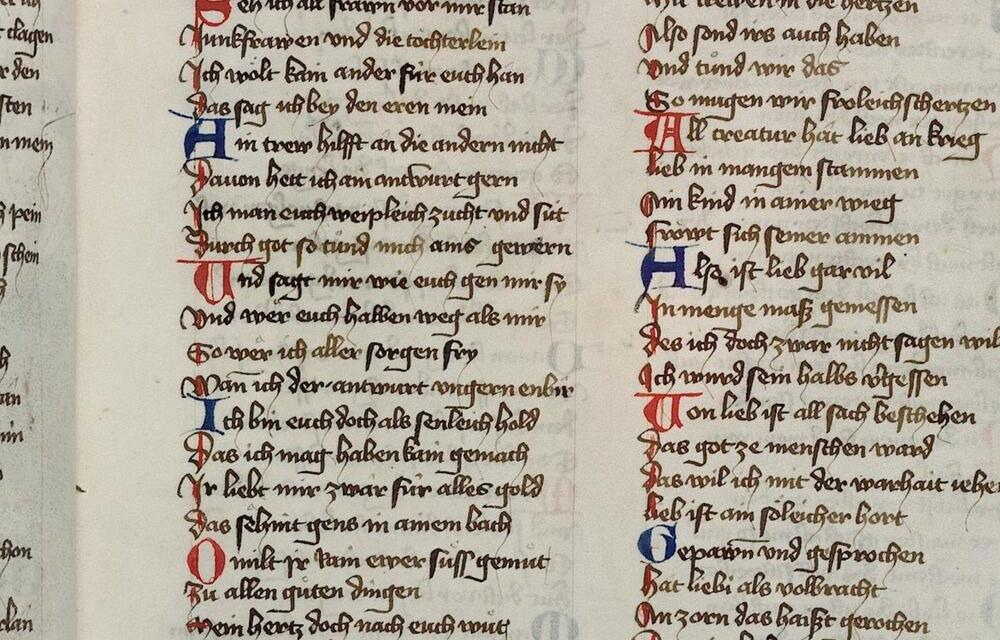 clagen
den
sten
mem
pein
schein
Seh ich all frawn vor mir stan
Junkfrawen vnd die tochterlein
Ich wolt kain ander für euch han
Das sag ich bey den eren mein
Ain trew hilfft an die andern nicht
Dauon hett ich ain antwurt gern
Ich man euch weipleich zucht vnd sitt
Durch got so tünd mich ains gewern
Und sagt mir wie euch gen mir sy
Vnd wer euch halben weg als mir
So wer ich aller sorgen fry
Wan̄ ich der antwurt vngern enbir
Ich bin euch doch als senleich hold
Das ich mag haben kain gemach
Ir liebt mir zwar für alles gold
Das sehint gens in ainem bach
O milt ir kain ewer süss gemüt
Zu allen guten dingen
Mein hertz doch nach euch wüt
trewen in die hertzen
Also sond irs auch haben
Vnd tünd wir das
So mugen wir froleich schertzen
All creatur hat lieb an krieg
lieb in mangem stammen
Ain kind in ainer wieg
frowt sich seiner ammen
Also ist lieb gar vil
In menge maß gemessen
Des ich doch zwar nicht sagen wil
Ich würd sein halbs v̄gessen
Von lieb ist all sach beschehen
Das got ze menschen ward
Das wil ich mit der warhait iehen
lieb ist ain söleicher hort
Gepawn̄ vnd gesprochen
hat liebi als volbracht
An zorn das haißt gerochen